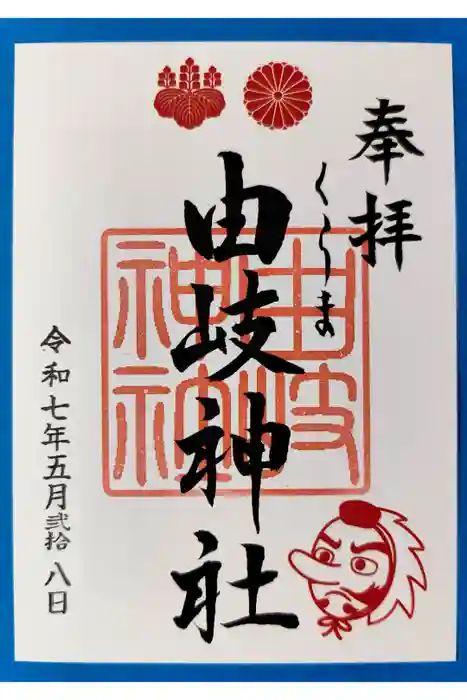 奉拝
くらま
由岐神社
由岐神社
令和七年五月弐拾八日